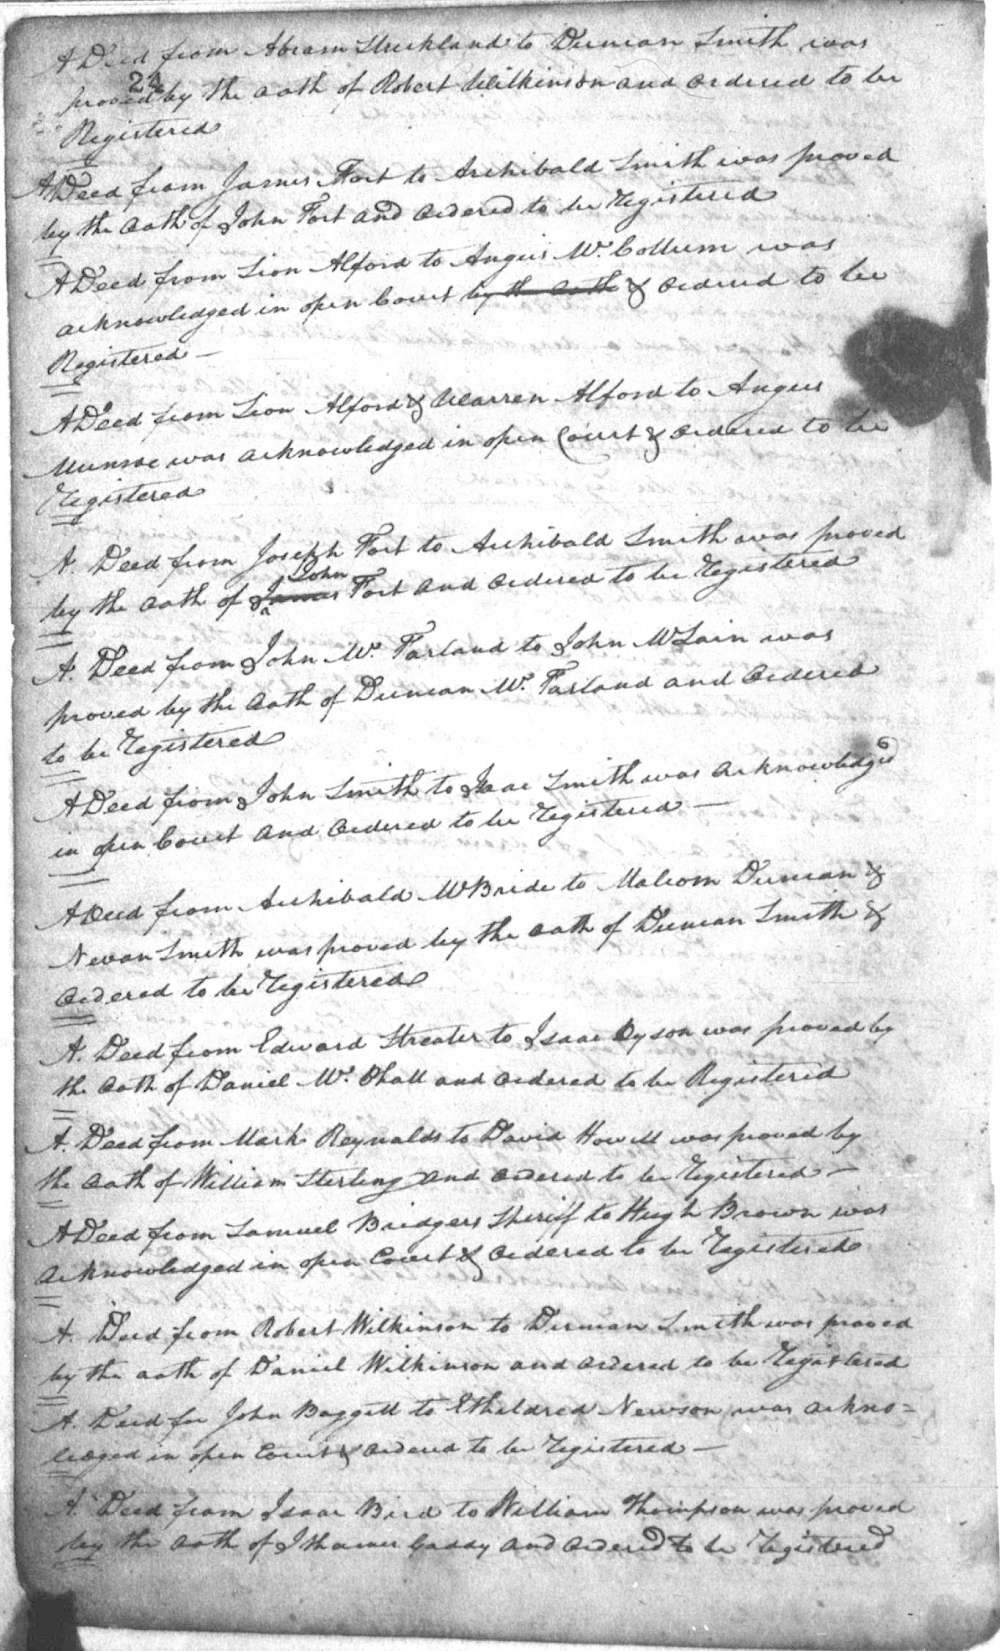 A Deed from Abram Strickland to Duncan Smith was
24
proved by the oath of Robert Wilkinson and ordered to be
Registered
A Deed from James Fort to Archibald Smith was proved
by the oath of John Fort and ordered to be Registered
A Deed from Sion Alford to Angus Mc. Collum was
acknowledged in open Court by the oath & ordered to be
Registered —
A Deed from Sion Alford & Warren Alford to Angus
Munroe was acknowledged in open Court & ordered to be
Registered
A. Deed from Joseph Fort to Archibald Smith was proved
John
by the oath of James Fort and ordered to be Registered
A. Deed from John Mc. Farland to John McLain was
proved by the oath of Duncan Mc. Farland and ordered
to be Registered
A Deed from John Smith to Isaac Smith was acknowledged
in open Court and ordered to be Registered —
A Deed from Archibald McBride to Malcom Duncan &
Nevan Smith was proved by the oath of Duncan Smith &
ordered to be Registered
A. Deed from Edward Streater to Isaac Dyson was proved by
the oath of Daniel Mc. Phall and ordered to be Registered
A. Deed from Mark Reynalds to David Howell was proved by
the oath of William Sterling and ordered to be Registered —
A Deed from Samuel Bridgers Sheriff to Hugh Brown was
acknowledged in open Court & ordered to be Registered
A. Deed from Robert Wilkinson to Duncan Smith was proved
by the oath of Daniel Wilkinson and ordered to be Registered
A. Deed for John Baggett to Etheldred Newson was ackno=
ledged in open Court & ordered to be Registered —
A. Deed from Isaac Bird to William Thompson was proved
by the oath of Ithamer Gaddy and ordered to be Registered